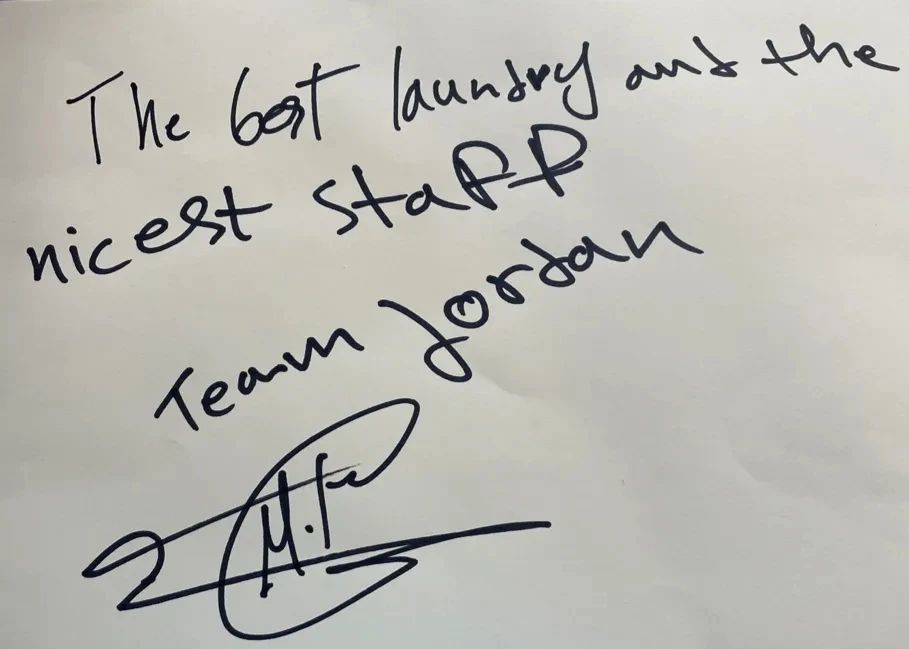 The best laundry and the
nicest staff
Team Jordan